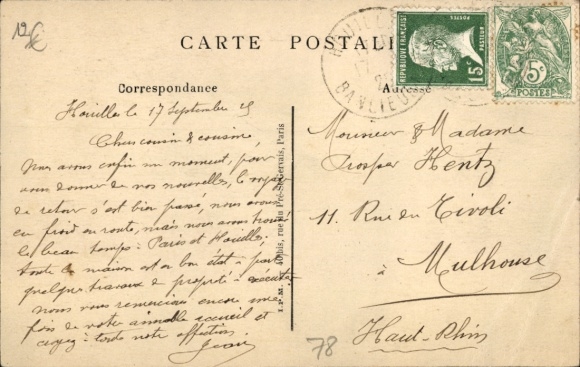 12€
CARTE POSTALE
Correspondance
Adresse
RÉPUBLIQUE FRANÇAISE
POSTES
PASTEUR
15c
5c
POSTES
HOUILLES
17
Houilles le 17 Septembre 25
Chers cousin & cousine,
Nous avons enfin un moment, pour
vous donner de nos nouvelles, le voyage
de retour s'est bien passé, nous avons
eu froid en route, mais nous avons trouvé
le beau temps à Paris et Houilles,
toute la maison est en bon état à part
quelques travaux de propreté à exécuter
nous vous remercions encore une
fois de votre aimable accueil et
croyez à toute notre affection.
Jean
Monsieur & Madame
Prosper Hentz
11. Rue du Tivoli
à
Mulhouse
Haut-Rhin
78
rue du Pré-St-Gervais, Paris